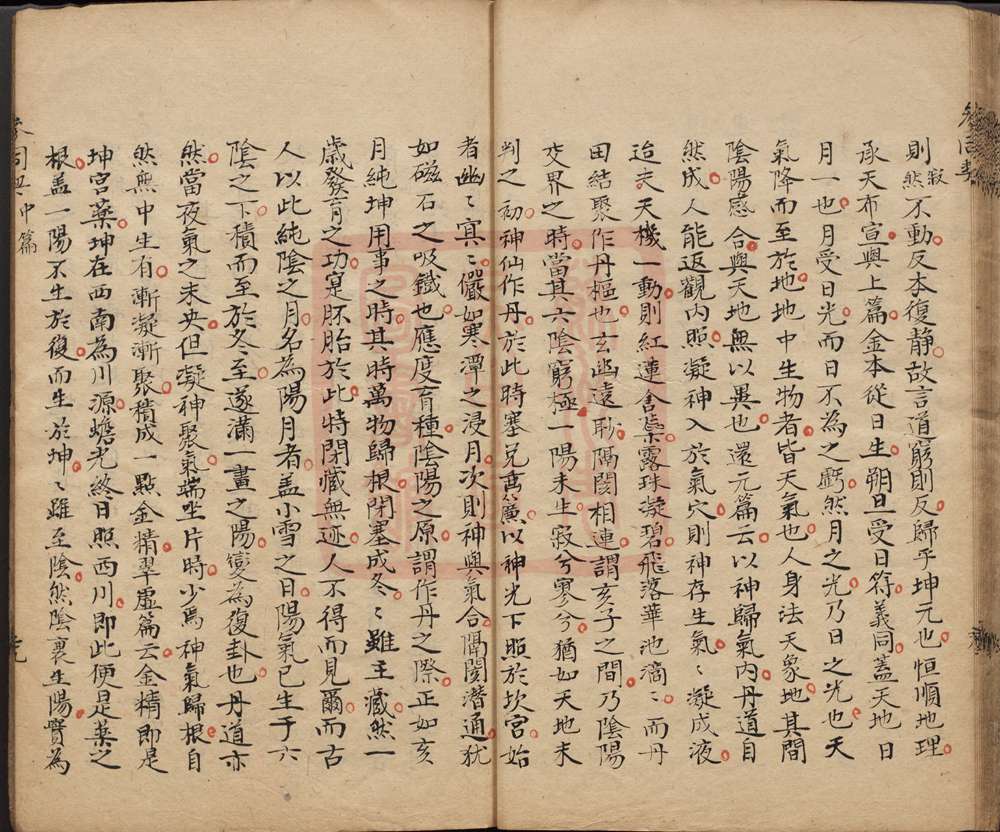 則寂然不動反本復静故言道窮則反歸乎坤元也恒順地理
承天布宣與上篇金本從日生朔旦受日符義同蓋天地日
月一也月受日光而日不為之虧然月之光乃日之光也天
氣降而至於地地中生物者皆天氣也人身法天象地其間
陰陽感合與天地無以異也還元篇云以神歸氣內丹道自
然成人能返觀内照凝神入於氣穴則神存生氣〻凝成液
迨夫天機一動則紅蓮含蘂露珠凝碧飛落華池滴〻而丹
田結聚作丹樞也玄幽遠眇隔閡相連謂亥子之間乃陰陽
交界之時當其六陰窮極一陽未生寂兮寥兮猶如天地未
判之初神仙作丹於此時塞兌垂簾以神光下照於坎宮始
者幽〻冥〻儼如寒潭之浸月次則神與氣合隔閡潜通犹
如磁石之吸鐵也應度育種陰陽之原謂作丹之際正如亥
月純坤用事之時其時萬物歸根閉塞成冬〻雖主藏然一
歲發育之功寔胚胎於此特閉藏無迹人不得而見爾而古
人以此純陰之月名為陽月者盖小雪之日陽氣已生于六
陰之下積而至於冬至遂滿一畫之陽變為復卦也丹道亦
然當夜氣之未央但凝神聚氣端坐片時少焉神氣歸根自
然無中生有漸凝漸聚積成一點金精翠虛篇云金精即是
坤宮藥坤在西南為川源蟾光終日照西川即此便是藥之
根盖一陽不生於復而生於坤〻雖至陰然陰裏生陽實為
中篇